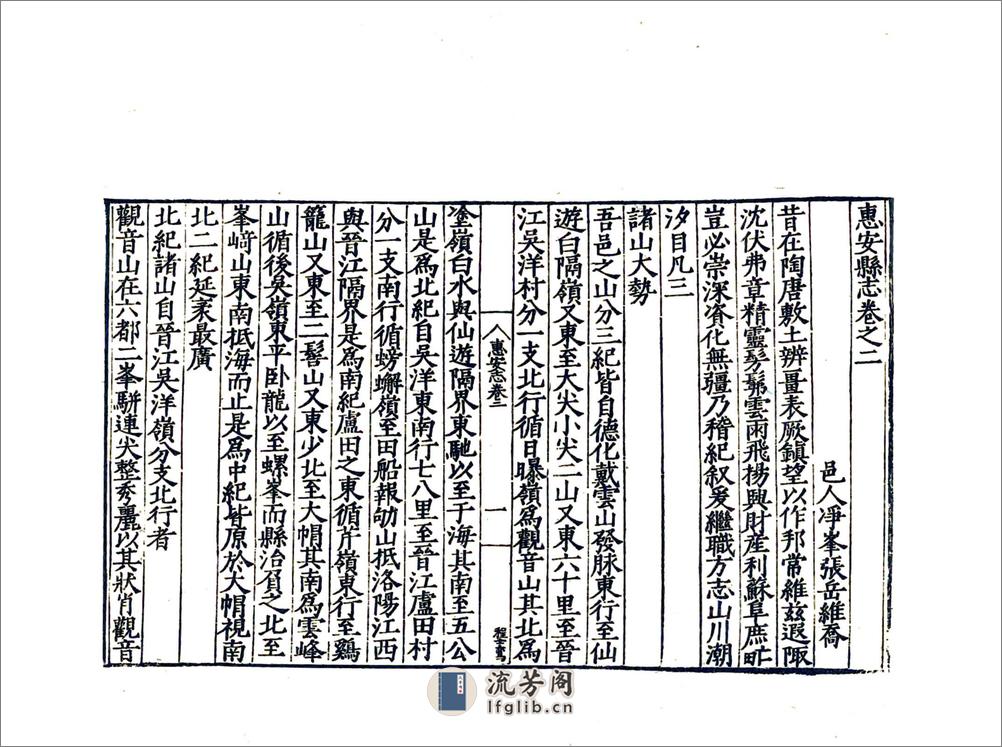 惠安縣志卷之二
邑人凈峯張岳維喬
昔在陶唐敷土辨畺表厥鎮望以作邦常維兹遐陬
沈伏弗章精靈髣髴雲雨飛楊興財産利蘇阜庶甿
豈必崇深資化無彊乃稽紀叙爰繼職方志山川潮
汐目凡三
諸山大勢
吾邑之山分三紀皆自德化戴雲山發脉東行至仙
遊白隔嶺又東至大尖小尖二山又東六十里至晉
江吳洋村分一支北行循日曝嶺爲觀音山其北爲
惠安志卷二
一
塗嶺白水與仙遊隔界東馳以至于海其南至五公
山是爲北紀自吳洋東南行七八里至晉江盧田村
分一支南行循螃蠏嶺至田船報劬山抵洛陽江西
與晉江隔界是爲南紀盧田之東循芹嶺東行至鷄
籠山又東至二髻山又東少北至大帽其南爲雲峰
山循後吳嶺東平卧龍以至螺峯而縣治負之北至
峯﨑山東南抵海而止是爲中紀皆原於大帽視南
北二紀延袤最廣
北紀諸山自晉江吳洋嶺分支北行者
觀音山在六都二峯駢連尖整秀麗以其狀肖觀音
流芳阁
lfglib.cn